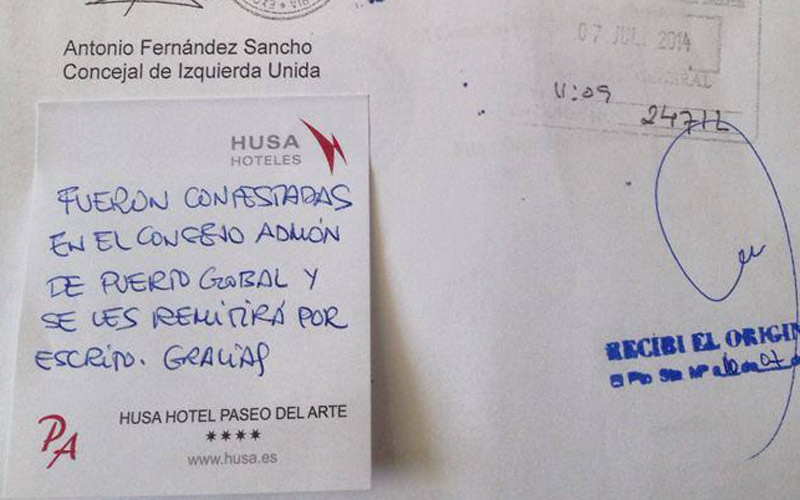 Antonio Fernández Sancho
Concejal de Izquierda Unida
07 JUL. 2014
11:09
24712
HUSA
HOTELES
FUERON CONTESTADAS
EN EL CONSEJO ADMÓN
DE PUERTO GLOBAL Y
SE LES REMITIRÁ POR
ESCRITO. GRACIAS
PA
HUSA HOTEL PASEO DEL ARTE
★★★★
www.husa.es
RECIBI EL ORIGIN
El Pto Sta Mª a 10 de 07 d